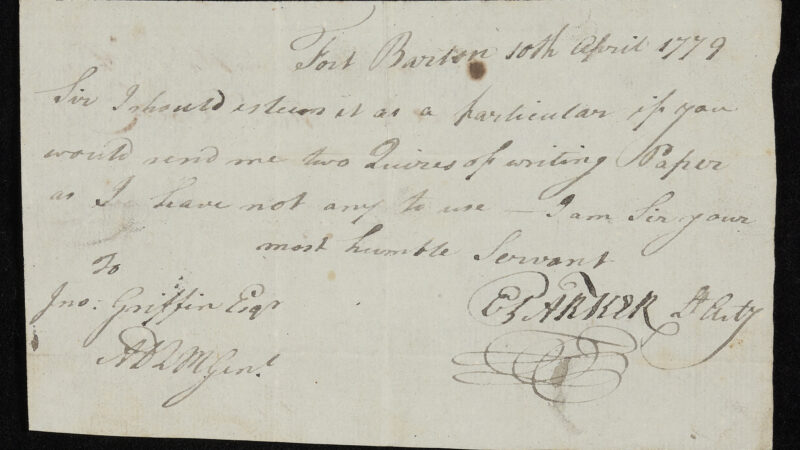 Fort Barton 10th April 1779
Sir I should esteem it as a particular if you
would send me two Quires of writing Paper
as I have not any to use — I am Sir your
most humble Servant
To
Jno: Griffin Esqr
ADQMGenl
E PARKER Lt Arty